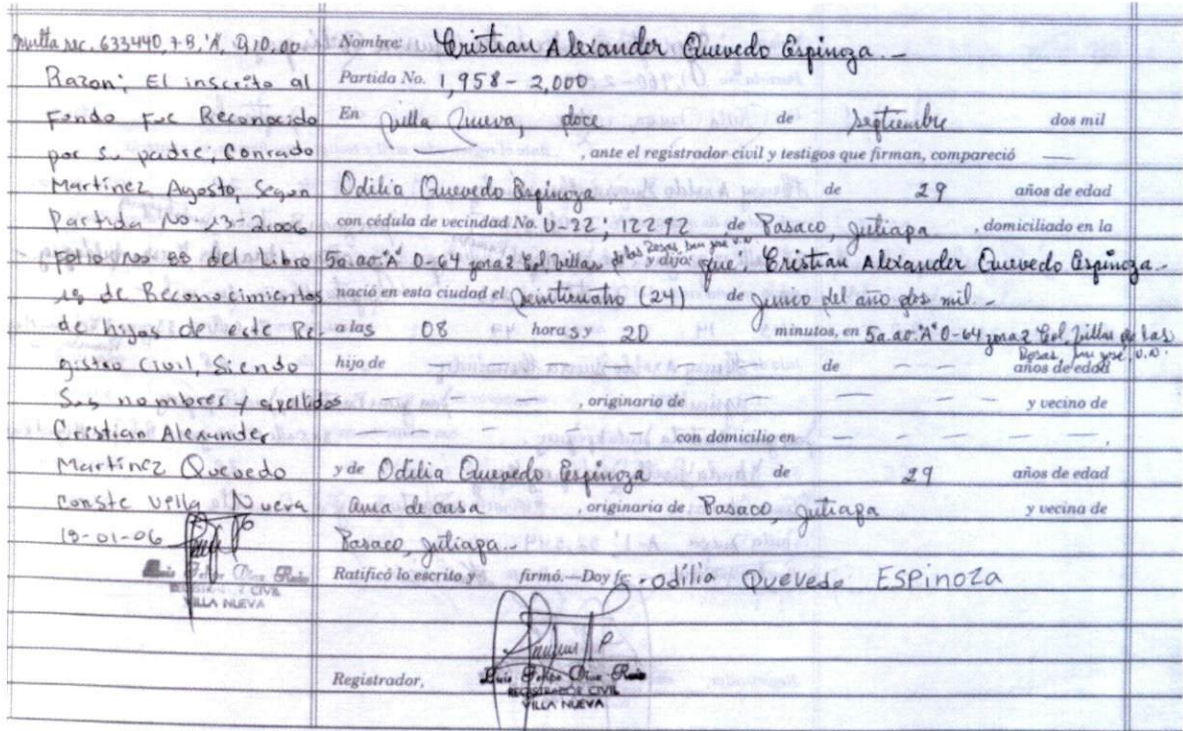 multa rec. 633440, 7-B, "A", Q10.00
Razon; El inscrito al
Fondo Fue Reconocido
por su padre, Conrado
Martinez Agosto, Segun
Partida No. 13-2006
Folio No 88 del Libro
19 de Reconocimientos
de hijos de este Re
gistro Civil, Siendo
Sus nombres y apellidos
Cristian Alexander
Martinez Quevedo
Conste Villa Nueva
18-01-06
REGISTRADOR CIVIL
VILLA NUEVA
Nombre: Cristian Alexander Quevedo Espinoza.-
Partida No. 1,958-2,000
En Villa Nueva, doce de Septiembre dos mil
—, ante el registrador civil y testigos que firman, compareció —
Odilia Quevedo Espinoza de 29 años de edad
con cédula de vecindad No. U-22; 12292 de Pasaco, Jutiapa, domiciliado en la
5a.av."A" 0-64 zona 2 Col. Villas de las Rosas, San José V.N. y dijo: que; Cristian Alexander Quevedo Espinoza.-
nació en esta ciudad el Veinticuatro (24) de junio del año dos mil.-
a las 08 horas y 20 minutos, en 5a.av."A" 0-64 zona 2 Col. Villas de las
Rosas, San José V.N.
hijo de — — — de — — años de edad
— — — —, originario de — — — y vecino de
— — — — con domicilio en — — — —,
y de Odilia Quevedo Espinoza de 29 años de edad
ama de casa, originaria de Pasaco, Jutiapa y vecina de
Pasaco, Jutiapa.-
Ratificó lo escrito y firmó.—Doy fe. Odilia Quevedo ESPinoza
Registrador,
Luis Felipe
REGISTRADOR CIVIL
VILLA NUEVA